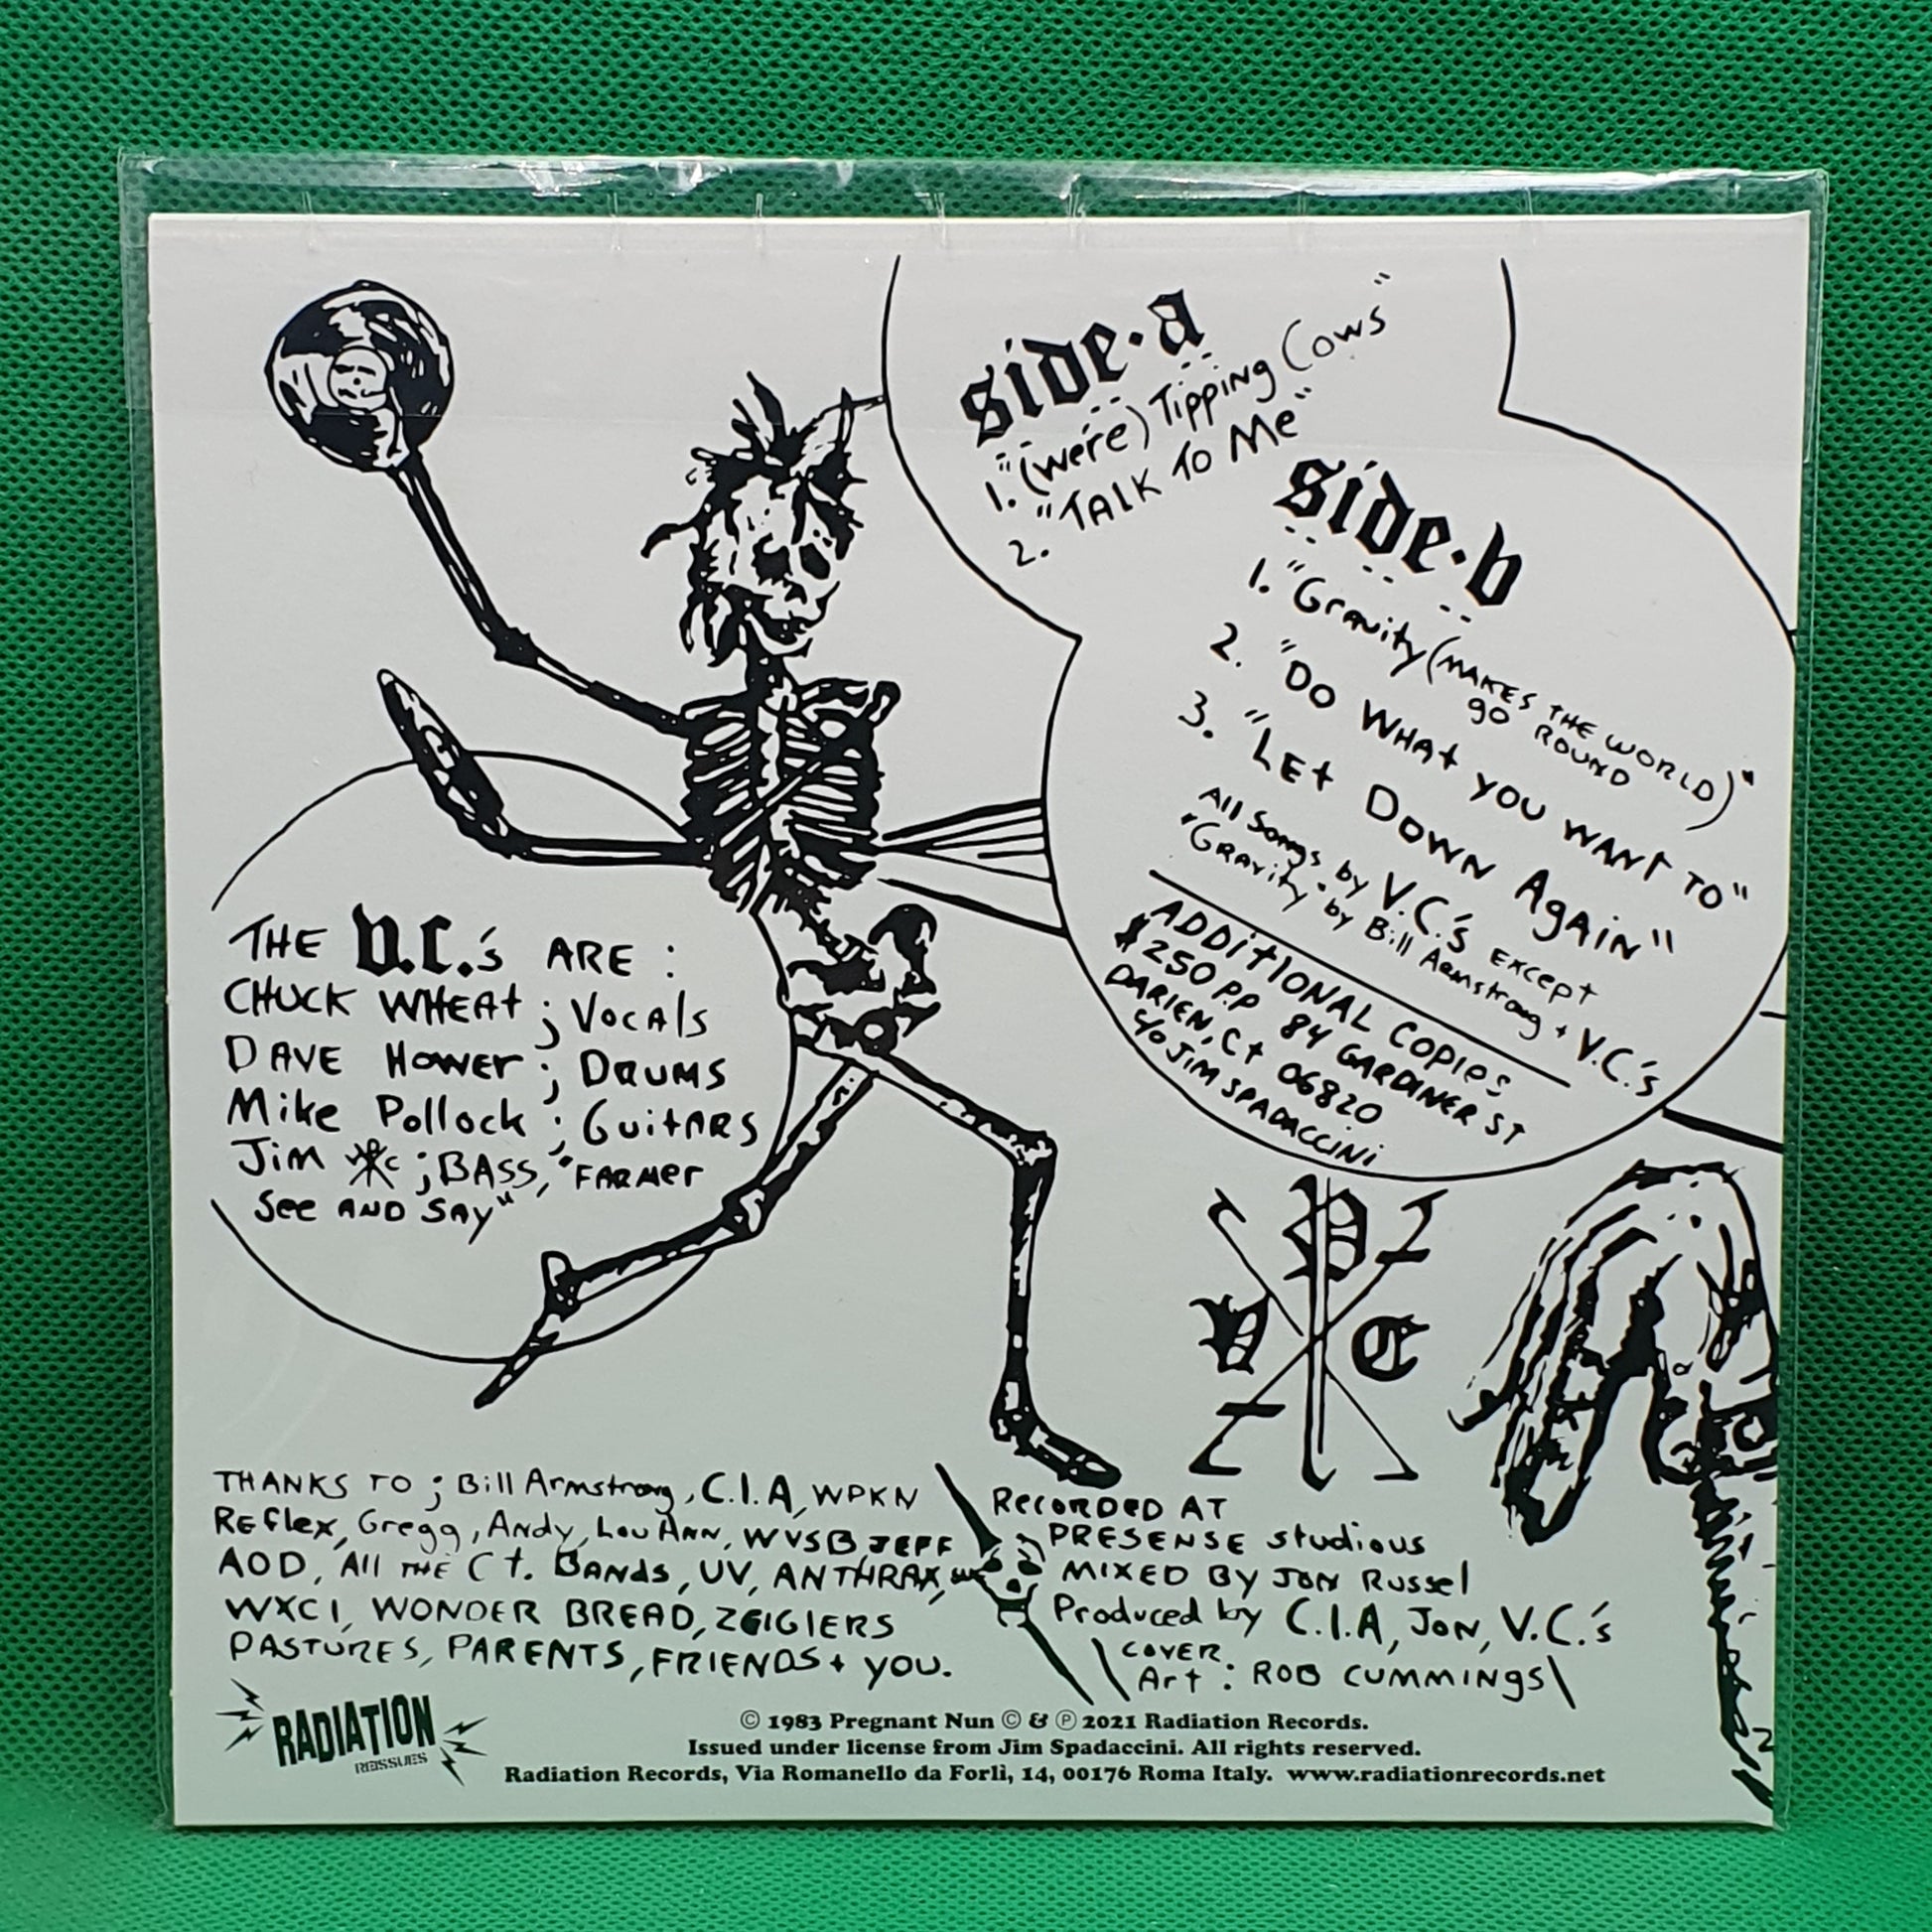 side·a
1. "(we're) Tipping Cows"
2. "TALK TO Me"
side·b
1. "Gravity (MAKES THE WORLD
go ROUND)"
2. "DO WHAt YOU WANT TO"
3. "LEt DOWN AgAiN"
All Songs by V.C.'s except
"Gravity" by Bill Armstrong + V.C.'s
ADDitIONAL COPIES
$250 P.P 84 GARDINER ST
DARIEN, Ct 06820
c/o JIM SPADACCINI
THE V.C.'s ARE :
CHUCK WHEAt ; VOCAls
DAVE Hower ; DRUMS
Mike Pollock ; GuitARS
Jim ; BASS, "FARMer
See AND SAy"
V P C
THANKS TO ; Bill Armstrong, C.I.A, WPKN
REflex, Gregg, Andy, Lou Ann, WVSB JEFF
AOD, All THE Ct. BANds, UV, ANTHRAX,
WXCI, WONDER BREAD, ZEIGlERS
PASTURES, PARENTS, FRIENDS + YOU.
RecORDED AT
PRESENSE studious
MIXED BY JON Russel
Produced by C.I.A, JON, V.C.'s
COVER
Art : ROB CUMMINGS
RADIATION
REISSUES
© 1983 Pregnant Nun © & ℗ 2021 Radiation Records.
Issued under license from Jim Spadaccini. All rights reserved.
Radiation Records, Via Romanello da Forlì, 14, 00176 Roma Italy. www.radiationrecords.net